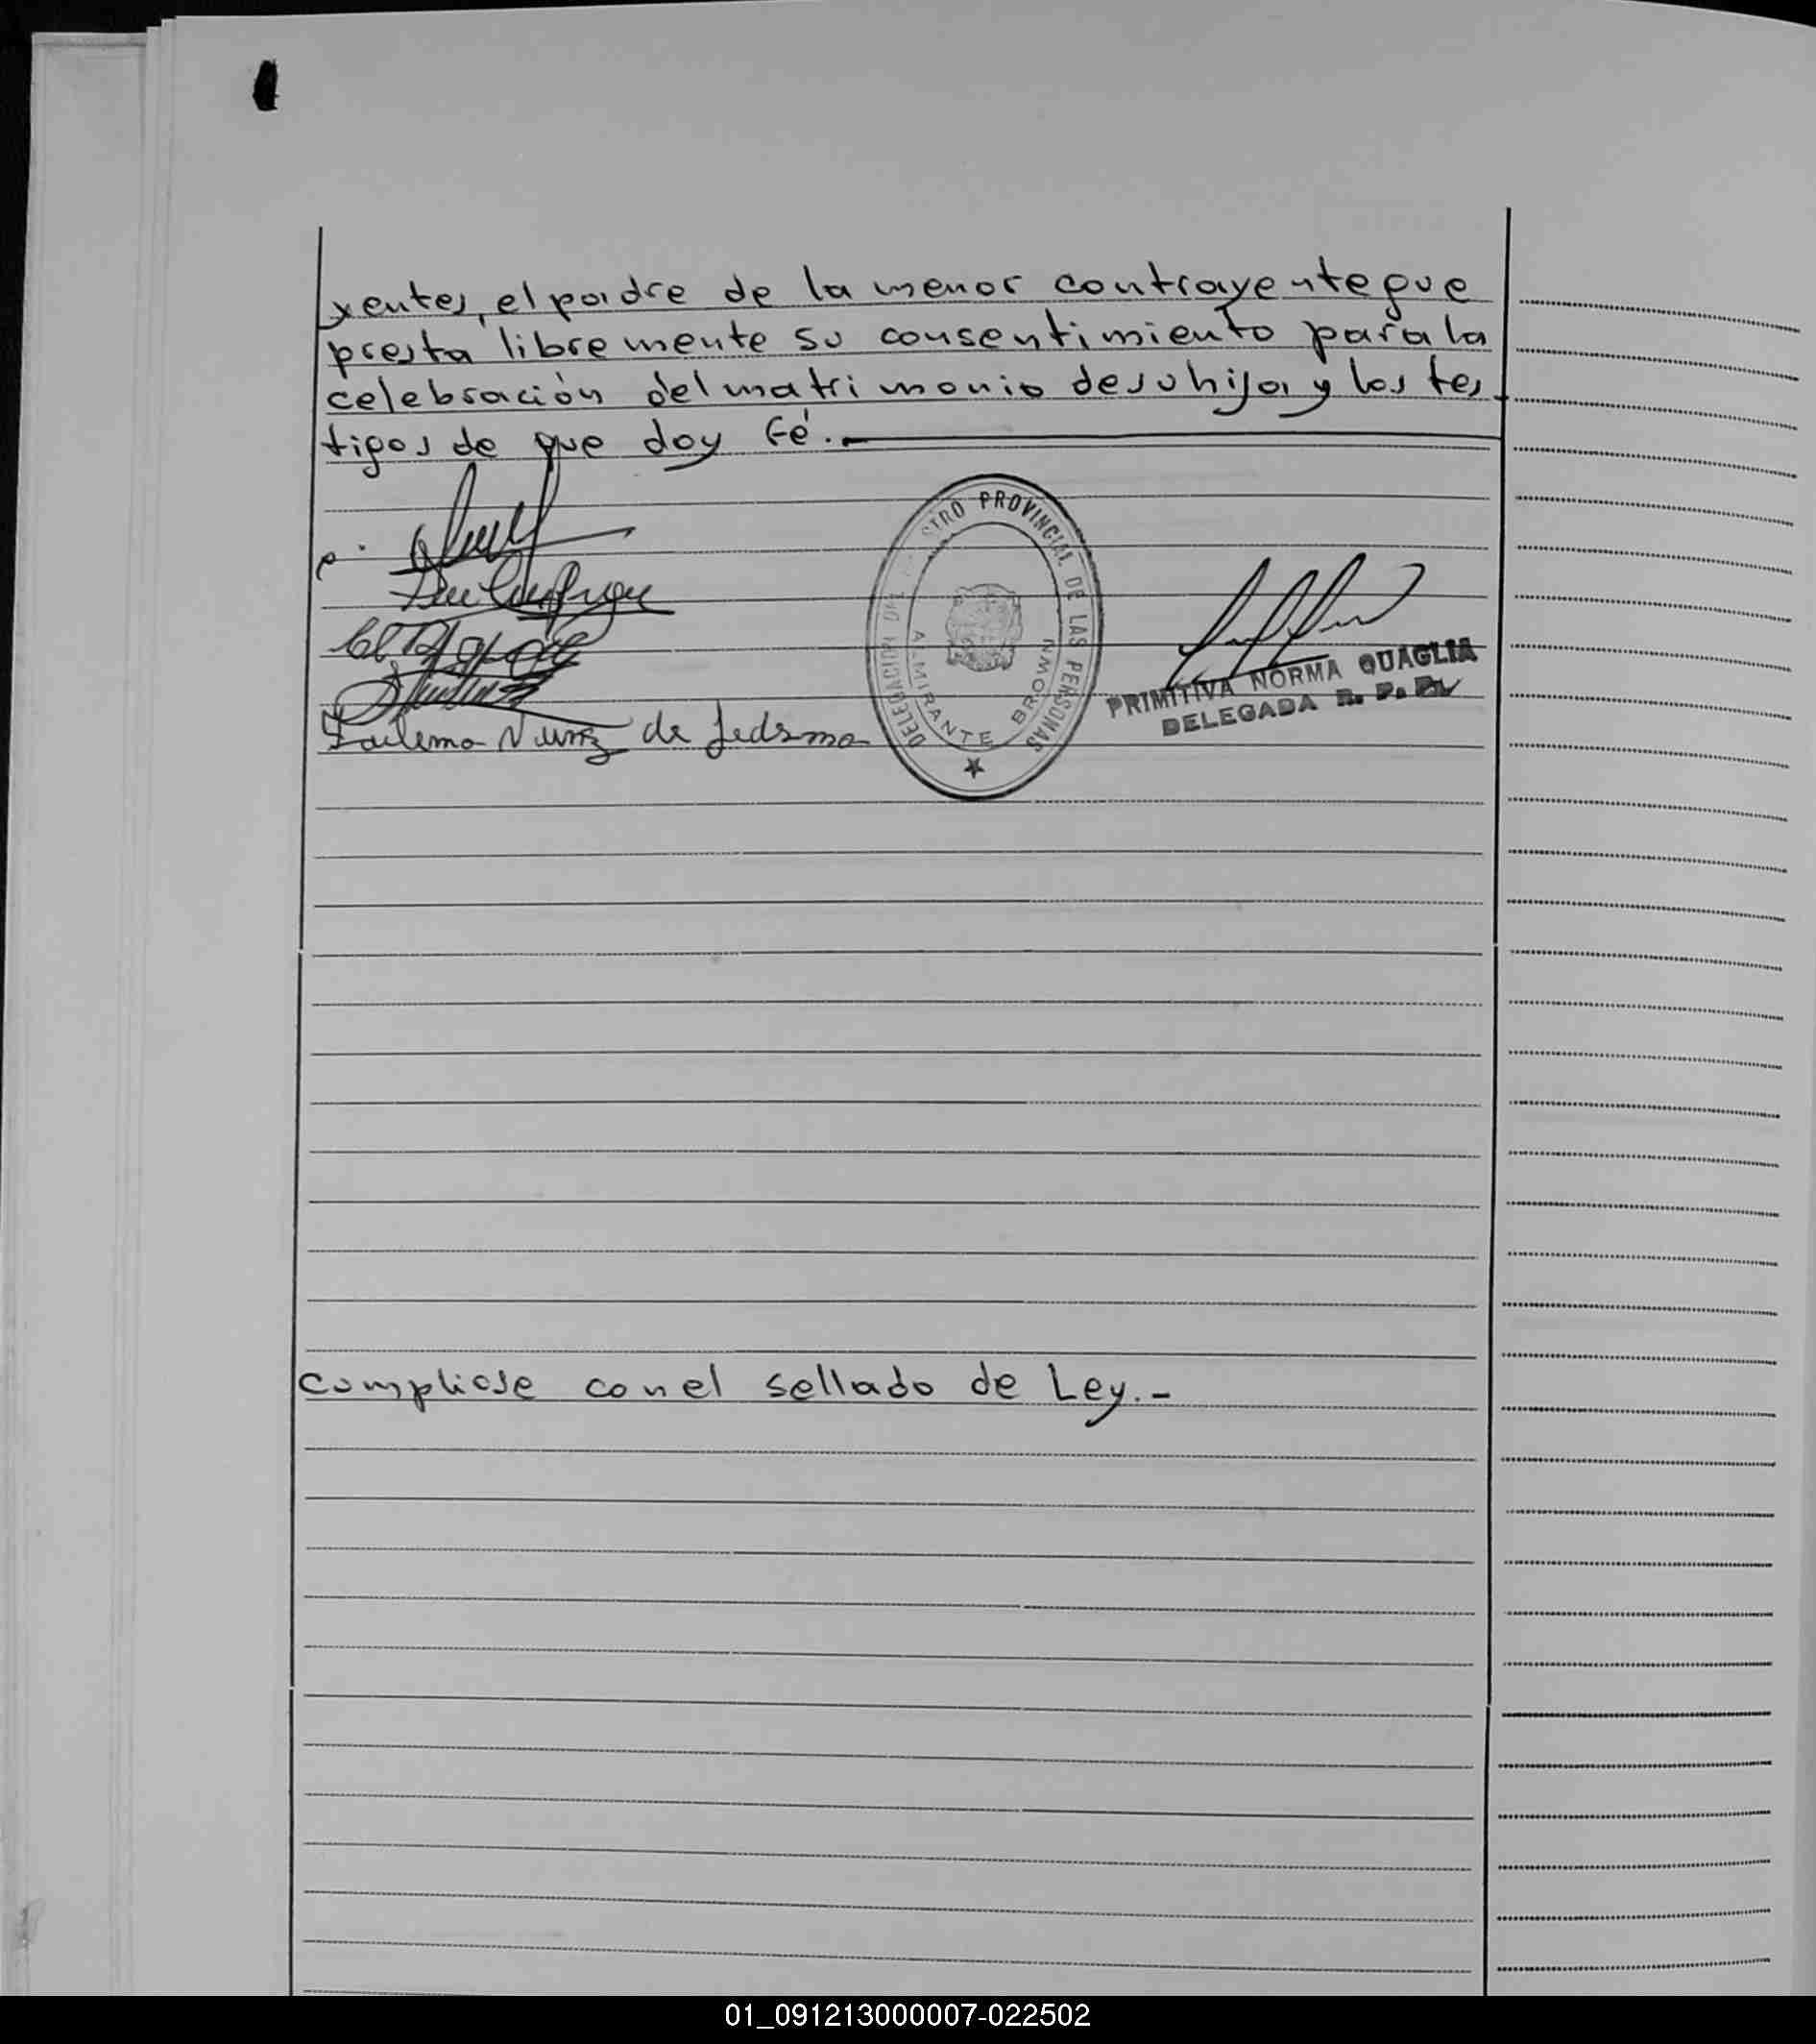 yentes, el padre de la menor contrayente que
presta libremente su consentimiento para la
celebración del matrimonio de su hija y los tes
tigos de que doy fé.-
STRO PROVINCIAL DE LAS PERSONAS
DELEGACION
ALMIRANTE BROWN
PRIMITIVA NORMA QUAGLIA
DELEGADA R. P. P.
de Ledesma
Cumpliose con el sellado de Ley.-
01_091213000007-022502